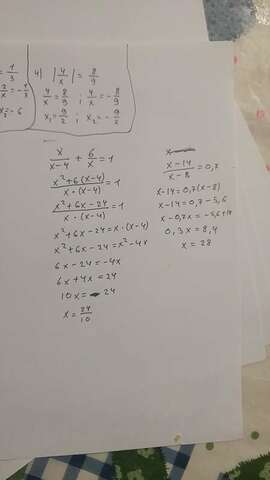 = 4/3
4) |4/x| = 8/9
x/x = -4/3
4/x = 8/9 ; 4/x = -8/9
x₂ = -6
x₁ = 9/2 ; x₂ = -9/2
x/(x-4) + 6/x = 1
(x²+6(x-4))/(x·(x-4)) = 1
(x²+6x-24)/(x·(x-4)) = 1
x²+6x-24 = x·(x-4)
x²+6x-24 = x²-4x
6x-24 = -4x
6x+4x = 24
10x = 24
x = 24/10
x
(x-14)/(x-8) = 0,7
x-14 = 0,7(x-8)
x-14 = 0,7-5,6
x-0,7x = -5,6+14
0,3x = 8,4
x = 28